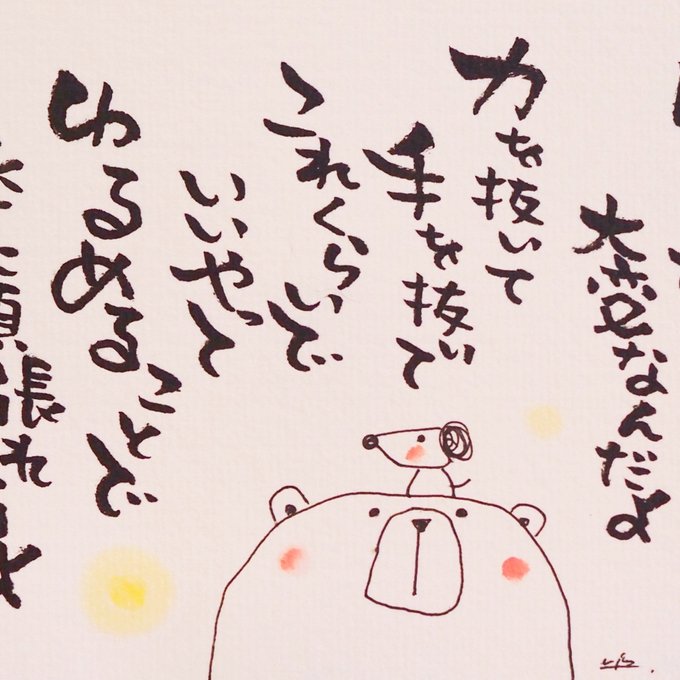 大変なんだよ
力を抜いて
手を抜いて
これくらいで
いいやって
ゆるめることで
に頑張れるよ